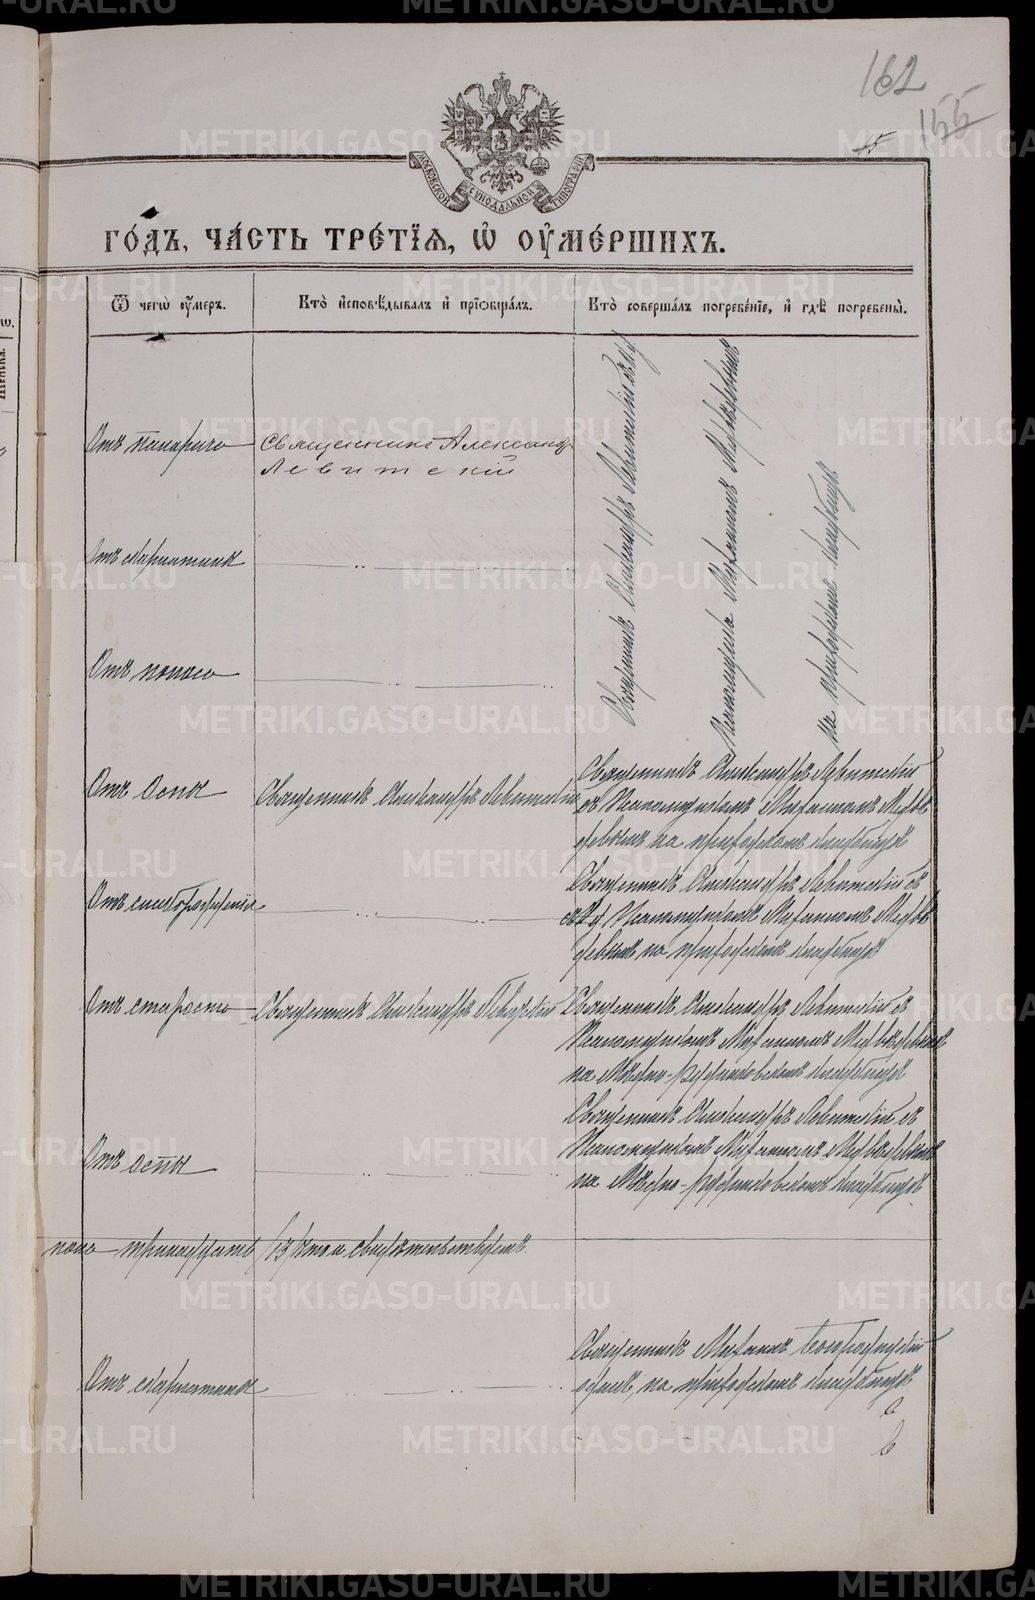 162
155
45
МОСКОВСКОЙ СѴНОДАЛЬНОЙ ТИПОГРАФІИ
ГО́ДЪ, ЧА́СТЬ ТРЕ́ТІЯ, Ѡ҆ ОУ҆МЕ́РШИХЪ.
Ѿ чегѡ̀ ᲂу҆́меръ.
Кто̀ и҆сповѣ́дывалъ и҆ приѻбща́лъ.
Кто̀ соверша́лъ погребе́нїе, и҆ гдѣ̀ погребены̀.
Отъ
Священникъ Александръ
Левитскій
Священникъ Александръ Левитскій съ
Псаломщикомъ Михаиломъ Медвѣдевымъ
на приходскомъ кладбищѣ
Отъ скарлатины
Отъ поноса
Отъ Оспы
Священникъ Александръ Левитскій
Священникъ Александръ Левитскій
съ Псаломщикомъ Михаиломъ Медвѣ
девымъ на приходскомъ кладбищѣ
Отъ слаборожденія
Священникъ Александръ Левитскій съ
Псаломщикомъ Михаиломъ Медвѣ
девымъ на приходскомъ кладбищѣ
Отъ старости
Священникъ Александръ Левитскій
Священникъ Александръ Левитскій съ
Псаломщикомъ Михаиломъ Медвѣдевымъ
на кладбищѣ
Отъ оспы
Священникъ Александръ Левитскій съ
Псаломщикомъ Михаиломъ Медвѣдевымъ
на кладбищѣ
тринадцать /13/ въ томъ свидѣтельствуемъ
Отъ скарлатины
Священникъ Михаилъ
одинъ, на приходскомъ кладбищѣ
METRIKI.GASO-URAL.RU